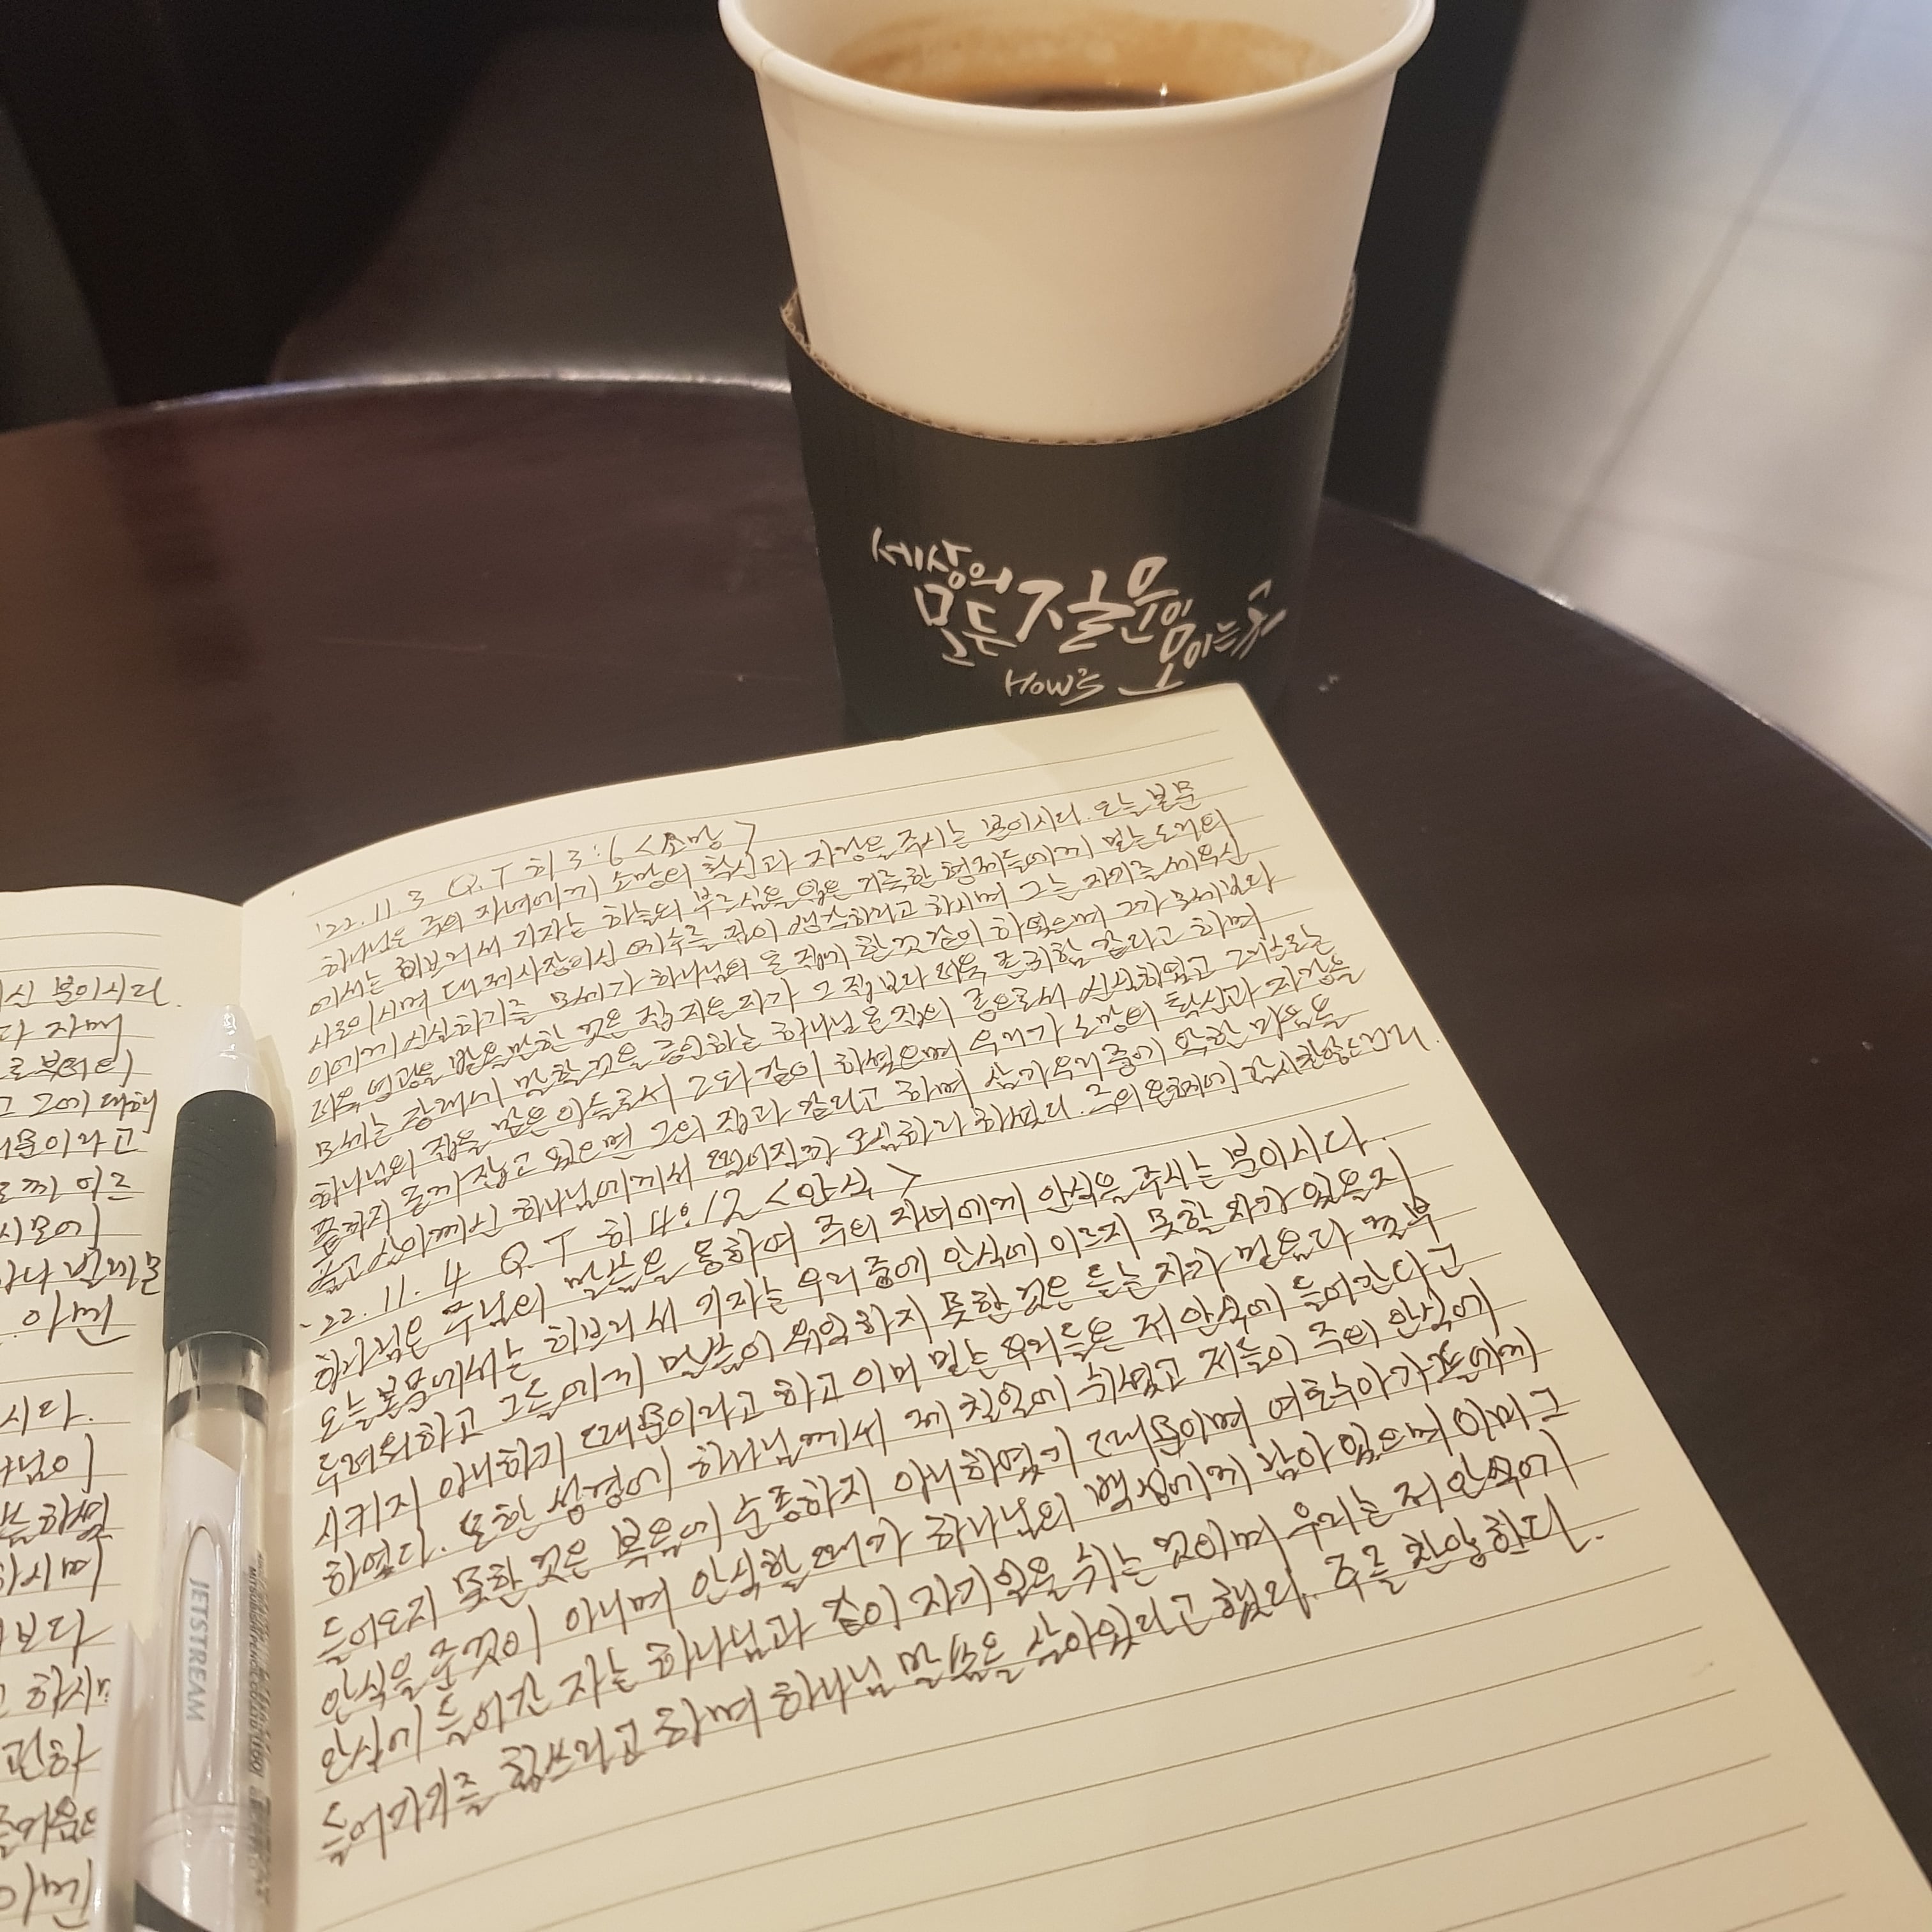 세상의
모든 질문이
모이는 곳
HOW's
'22. 11. 3 Q.T 히 3:6 <소망>
하나님은 주의 자녀에게 소망의 확신과 자랑을 주시는 분이시다. 오늘 본문
에서는 히브리서 기자는 하늘의 부르심을 입은 거룩한 형제들에게 믿는 도리의
사도이시며 대제사장이신 예수를 깊이 생각하라고 하시며 그는 자기를 세우신
이에게 신실하기를 모세가 하나님의 온 집에 한 것 같이 하였으며 그가 모세보다
더욱 영광을 받을만한 것은 집 지은 자가 그 집보다 더욱 존귀함 같다고 하며
모세는 장래에 말할 것을 증언하는 하나님 온 집의 종으로서 신실하였고 그리스도는
하나님의 집을 맡은 아들로서 그와 같이 하였으며 우리가 소망의 확신과 자랑을
끝까지 굳게 잡고 있으면 그의 집과 같다고 하며 삼가 우리 중에 악한 마음을
품고 살아계신 하나님에게서 떨어질까 조심하라 하셨다. 주의 은혜에 감사찬양드린다.
'22. 11. 4 Q.T 히 4:12 <안식>
하나님은 주님의 말씀을 통하여 주의 자녀에게 안식을 주시는 분이시다.
오늘 본문에서는 히브리서 기자는 우리 중에 안식에 이르지 못할 자가 있을지
두려워하고 그들에게 말씀이 유익하지 못한 것은 듣는 자가 믿음과 결부
시키지 아니하기 때문이라고 하고 이미 믿는 우리들은 저 안식에 들어간다고
하였다. 또한 성경에 하나님께서 제 칠일에 쉬셨고 저들이 주의 안식에
들어오지 못한 것은 복음에 순종하지 아니하였기 때문이며 여호수아가 그들에게
안식을 준것이 아니며 안식할 때가 하나님의 백성에게 남아 있으며 이미 그
안식에 들어간 자는 하나님과 같이 자기 일을 쉬는 것이며 우리는 저 안식에
들어가기를 힘쓰라고 하며 하나님 말씀은 살아있다고 했다. 주를 찬양한다.
신 분이시다.
다 자매
로부터의
고 그에 대해
때문이라고
에게 이르
시오에
하나 번제물
아멘
시다.
나님이
는 하였
하시며
보다
고 하시며
아멘
JETSTREAM